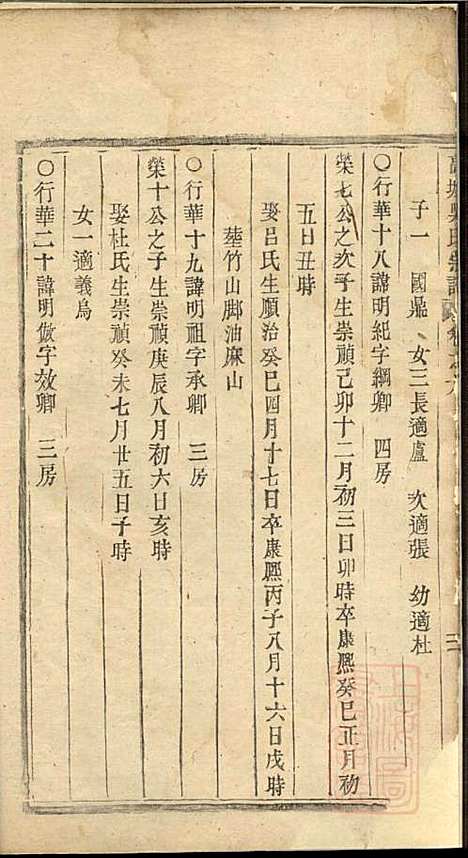 吳氏宗譜 卷之九
子一 國鼎 女三長適盧 次適張 幼適杜
〇行華十八諱明紀字綱卿 四房
榮七公之次子生崇禎己卯十二月初三日卯時卒康熙癸巳正月初
五日丑時
娶呂氏生順治癸巳四月十七日卒康熙丙子八月十六日戌時
塟竹山脚油麻山
〇行華十九諱明祖字承卿 三房
榮十公之子生崇禎庚辰八月初六日亥時
娶杜氏生崇禎癸未七月廿五日子時
女一適義烏
〇行華二十諱明倣字效卿 三房